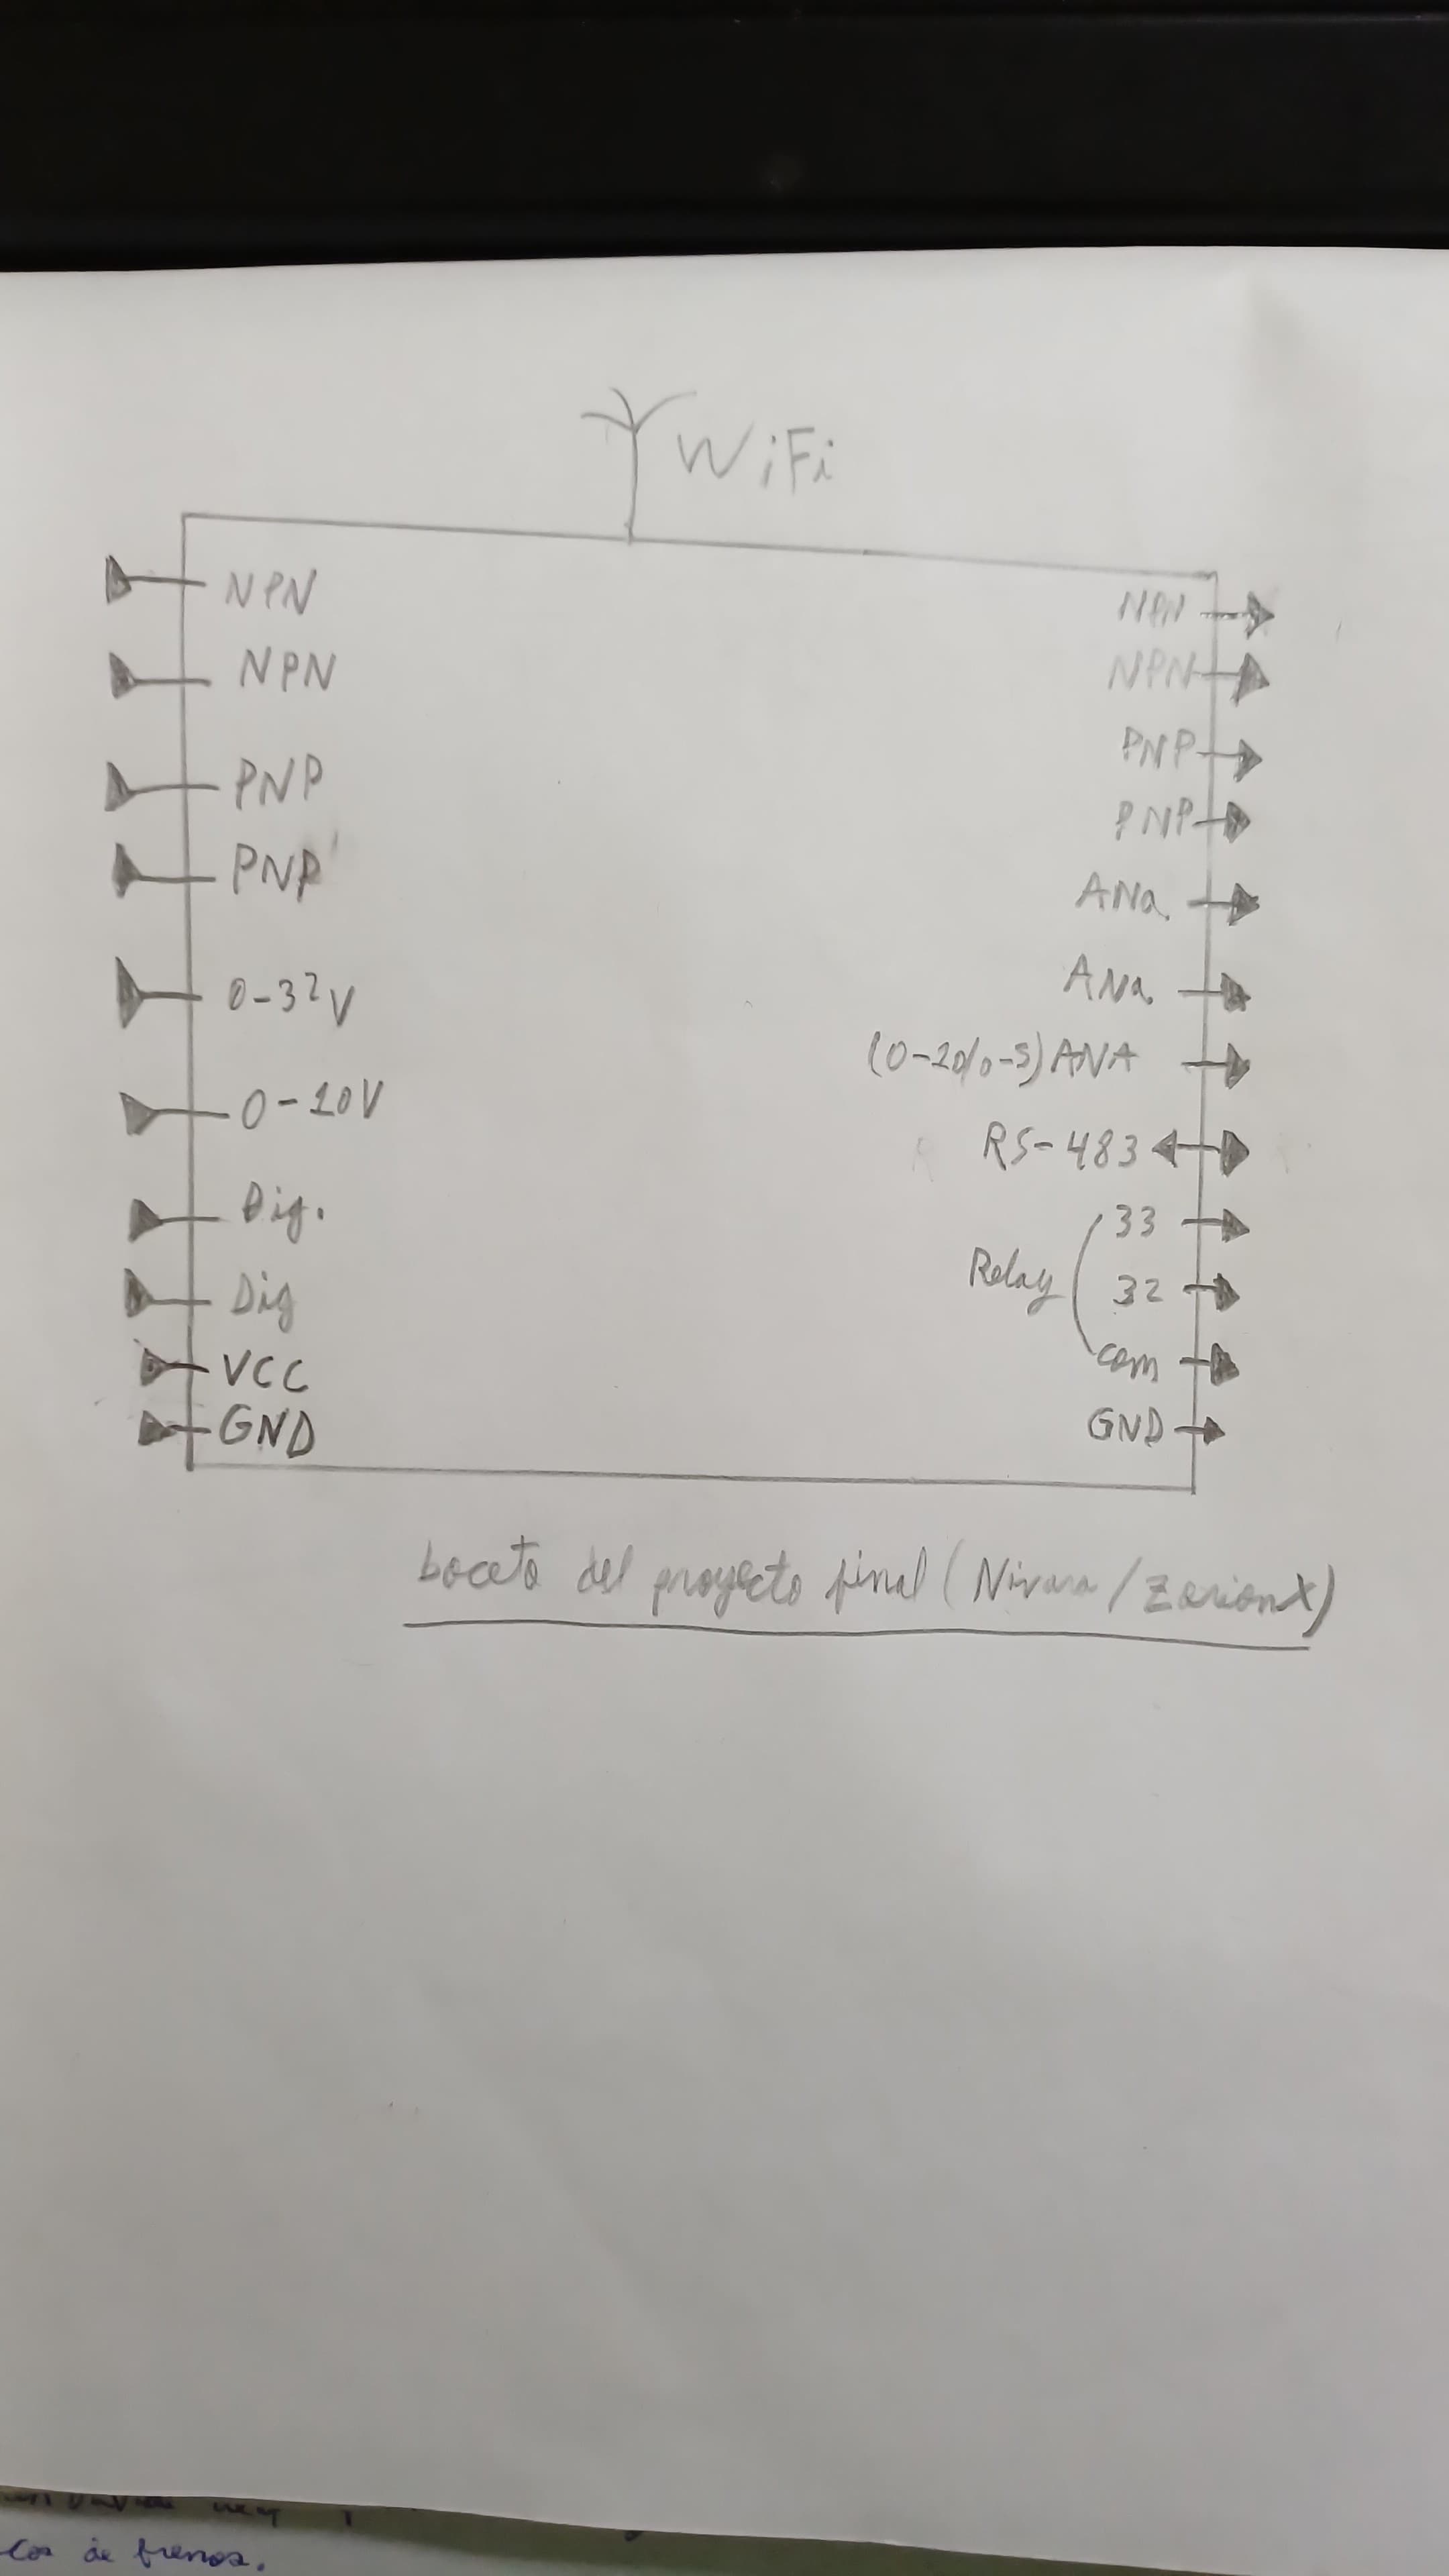 WiFi
NPN
NPN
PNP
PNP
0-32V
0-10V
Dig.
Dig
VCC
GND
NPN
NPN
PNP
PNP
ANa.
ANa.
ANA
RS-483
Relay
33
32
com
GND
boceto del proyecto final (Nivara/ZarionX)
cos de frenos.